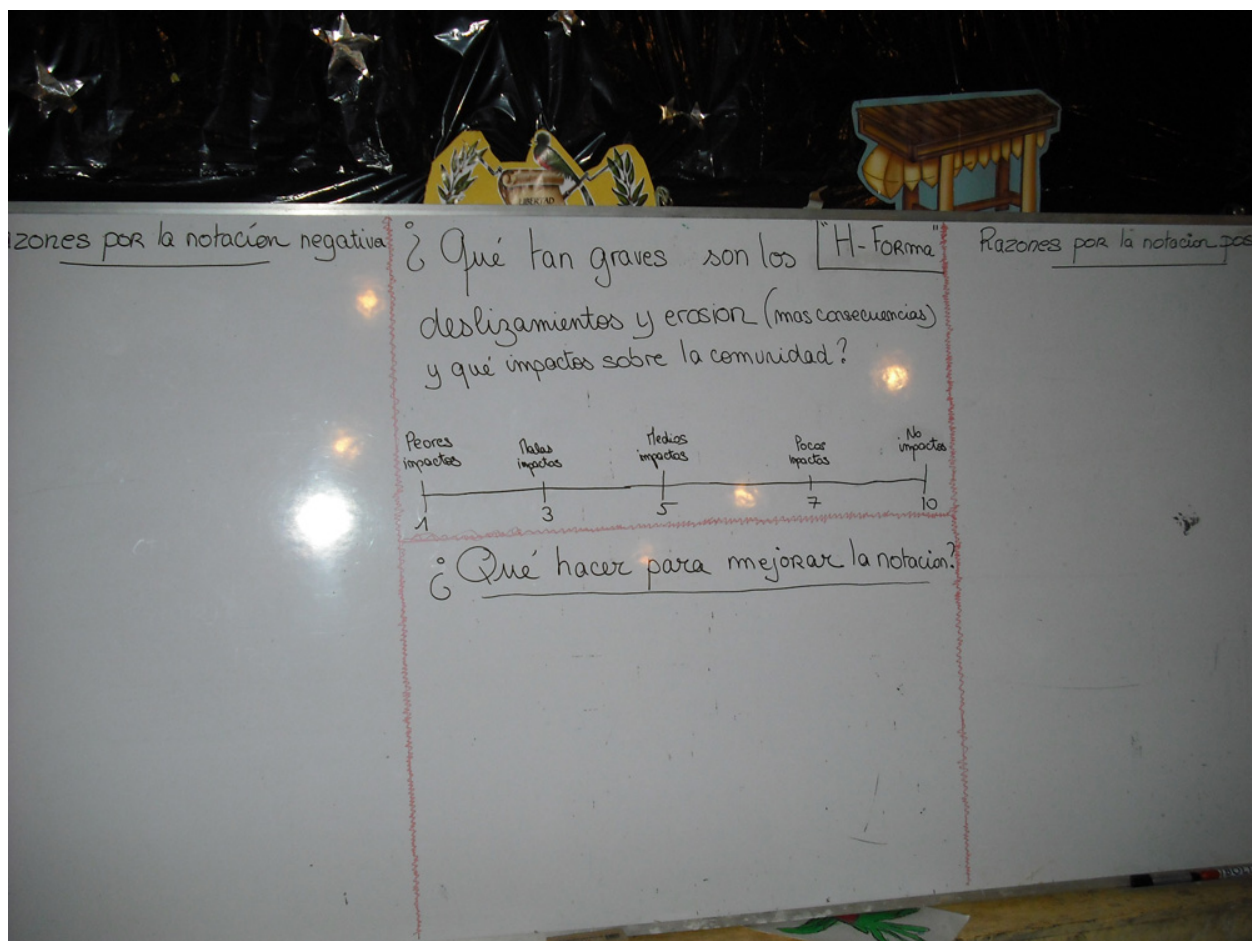 LIBERTAD
izones por la notación negativa
¿ Qué tan graves son los
"H-Forma"
deslizamientos y erosion (mas consecuencias)
y qué impactos sobre la comunidad?
Peores
impactos
Malos
impactos
Medios
impactos
Pocos
impactos
No
impactos
1
3
5
7
10
¿ Qué hacer para mejorar la notacion?
Razones por la notacion pos